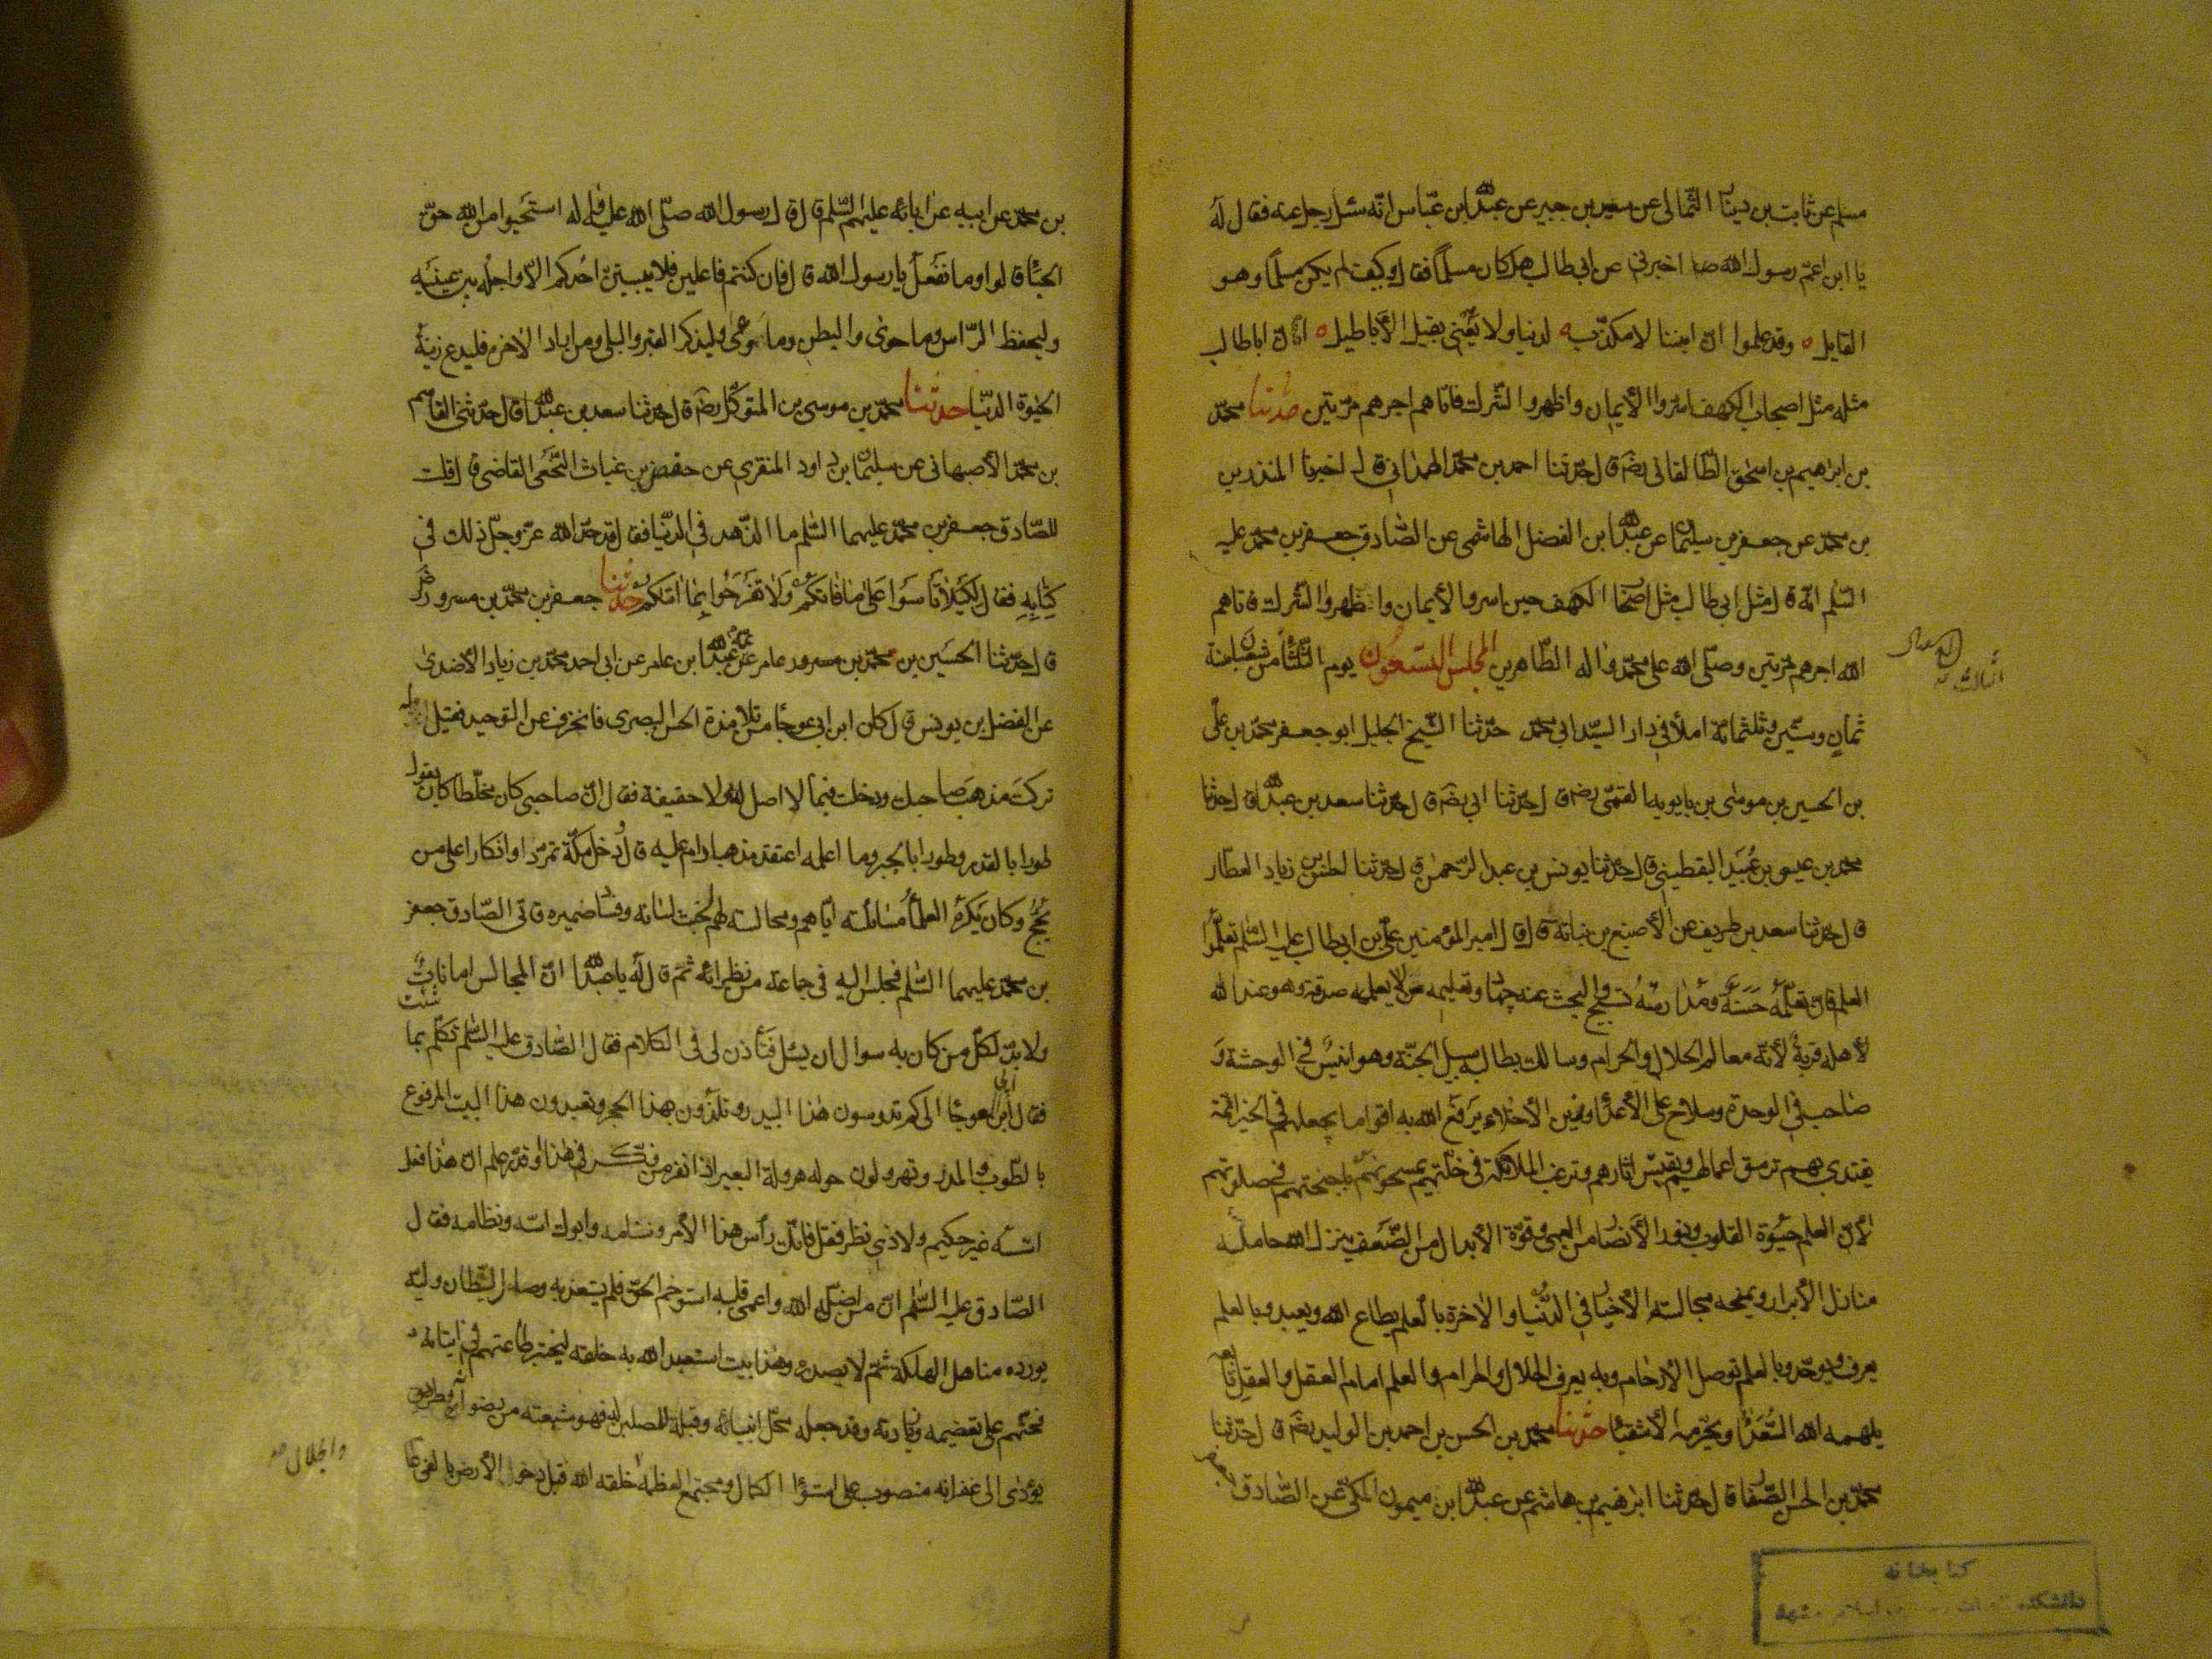 مسلم عن ثابت بن دينار الثمالى عن سعيد بن جبير عن عبد الله ابن عبّاس انّه سئل رجل عنه فقال له
يا ابن اعمّ رسول الله ص اخبرنى عن ابى طالب هل كان مسلماً فقال و كيف لم يكن مسلماً و هو
القايل و قد علموا انّ ابننا لا مكذّب لدينا و لا يُعنى بقيل الأباطيل انّ ابا طالب
مثله مثل اصحاب الكهف اسرّوا الأيمان و اظهروا الشّرك فاتاهم اجرهم مرّتين حدثنا محمّد
بن ابراهيم بن اسحق الطّالقانى رضه ق ل حدّثنا احمد بن محمّد الهمدانى ق ل اخبرنا المنذر بن
بن محمّد عن جعفر بن سليمان عن عبد الله ابن الفضل الهاشمى عن الصّادق جعفر بن محمّد عليه
السّلم انّه ق ل مثل ابى طالب مثل اصحاب الكهف حين اسروا الأيمان و اظهروا الشرك فاتاهم
الله اجرهم مرتين و صلّى الله على محمّد و اله الطّاهرين المجلس التسعون يوم الثّلثا من شعبان سنة
ثمانٍ و ستّين و ثلثمائة املأ فى دار السيّد ابى محمّد حدّثنا الشّيخ الجليل ابو جعفر محمّد بن علىّ
بن الحسين بن موسى بن بابويه القمّى رضه ق ل حدّثنا ابى رضه ق ل حدّثنا سعد بن عبد الله ق ل حدّثنا
محمد بن عيسى بن عُبَيد اليقطينى ق ل حدّثنا يونس بن عبد الرّحمن ق ل حدّثنا الحسن بن زياد العطّار
ق ل حدّثنا سعد بن طريف عن الأصبغ بن نباتة ق ل ق ل امير المؤمنين علىّ بن ابى طالب عليه السّلم تعلّموا
العلم فانّ تعلّمهُ حَسَنَةٌ و مُدارستهُ تسبيح و البحث عنه جهاد و تعليمه من لا يعلمه صدقة و هو عند الله
لأهله قربةٌ لأنّه معالم الحلال و الحرام و سالك بطالبه سبيل الجنّة و هو انيسٌ فى الوحشة وَ
صاحب فى الوحدة و سلاح على الأعدا و زين الأخلاء يَرفَع الله به اقواما يجعلهم فى الخير ائمّة
يقتدى بهم ترمق اعمالهم و يقتبس اثارهم و ترغب الملائكة فى خلّتهم يمسحونهم باجنحتهم فى صلوتهم
لأنّ العلم حَيوة القلوب و نور الأَبصار من العمى و قوّة الأبدان من الضّعف ينزل الله حامله
منازل الأبرار و يمنحه مجالسة الأخيار فى الدّنيا و الاخرة بالعلم يطاع الله و يعبد و بالعلم
يعرف و يوحّد و بالعلم توصل الأرحام و به يعرف الحلال و الحرام و العلم امام العقل و العقل تابعه
يلهمه الله السُّعدا و يحرّمه الأشقيا حدّثنا محمّد بن الحسن بن احمد بن الوليد رضه ق ل حدّثنا
محمّد بن الحسن الصّفار ق ل حدّثنا ابرهيم بن هاشم عن عبد الله ابن ميمون المكّى عن الصّادق جعفر
كتابخانه
دانشكده
بن محمّد عن ابيه عن ابائه عليهم السّلم ق ل ق ل رسول الله صلّى الله عليه و اله استحيوا من الله حقّ
الحيا ق لوا و ما نفعلُ يا رسول الله ق ل فان كنتم فاعلين فلا يبيتنّ احدكم الّا و اجله بين عينَيه
و ليحفظ الرّاس و ما حوى و البطن و ما وعى و ليذكر القبر و البلى و من اراد الاخرة فليدع زينة
الحيوة الدنيا حدثنا محمّد بن موسى بن المتوكّل رضه ق ل حدثنا سعد بن عبد الله ق ل حدّثنى القاسم
بن محمّد الأصبهانى عن سليمان بن داود المنقرى عن حفص بن غياث النّخعى القاضى ق ل قلت
للصّادق جعفر بن محمّد عليهما السّلم ما الزّهد فى الدّنيا فقال قد حدّ الله عزّ و جلّ ذلك فى
كِتابِهِ فقال لكَيلا تَأسَوا عَلى ما فاتَكُم و لا تَفرَحوا بِما اتيكُم حدّثنا جعفر بن محمّد بن مسرور رضه
ق ل حدّثنا الحسين بن محمّد بن عامر عن عمّه عبد الله ابن عامر عن ابى احمد محمّد بن زياد الأزدى
عن الفضل بن يونس ق ل كان ابن ابى عوجا من تلامذة الحسن البصرى فانحرف عن التوحيد فقيل له
تركت مذهب صاحبك و دخلت فيما لا اصل له و لا حقيقة فقال انّ صاحبى كان مخلّطا كان يقول
طورا بالقدر و طورا بالجبر و ما اعلمه اعتقد مذهبا دام عليه ق ل و دخل مكّة تمرّدا و انكارا على من
يحجّ و كان يَكرَه العلما مُسائلته ايّاهم و مجالسته لهم لخبث لسانه و فساد ضميره فاتى الصّادق جعفر
بن محمّد عليهما السّلم فجلس اليه فى جماعة من نظرائه ثمّ ق ل له يا با عبد الله انّ المجالس امانات
و لا بدّ لكلّ من كان به سوال ان يسئل فتأذن لى فى الكلام فقال الصّادق عليه السّلم تكلّم بما شئت
فقال ابن ابى العوجا الى كم تدوسون هذا البيدر و تلوذون بهذا الحجر و تعبدون هذا البيت المرفوع
بالطّوب و المدر و تهرولون حوله هرولة البعير اذا نفر من فكّر فى هذا و قدّر علم انّ هذا فعل
اسّسه غير حكيم و لا ذى نظر فقل فانّك رأس هذا الأمر و سنامه و ابوك اسّه و نظامه فقال
الصّادق عليه السّلم انّ من اضلّه الله و اعمى قلبه استوخم الحقّ فلم يستعذبه و صار الشّيطان وليّه
يورده مناهل الهلكة ثمّ لا يصدره و هذا بيت استعبد الله به خلقه ليختبر طاعتهم فى اتيانه
فحثّهم على تعظيمه و زيارته و قد جعله محلّ انبيائه و قبلة للمصلين له فهو شعبة من رضوانه و طريق
يؤدّى الى غفرانه منصوب على استوا الكمال و مجتمع العظمة خلقه الله قبل دحو الأرض بالفى عام
و الجلال صح